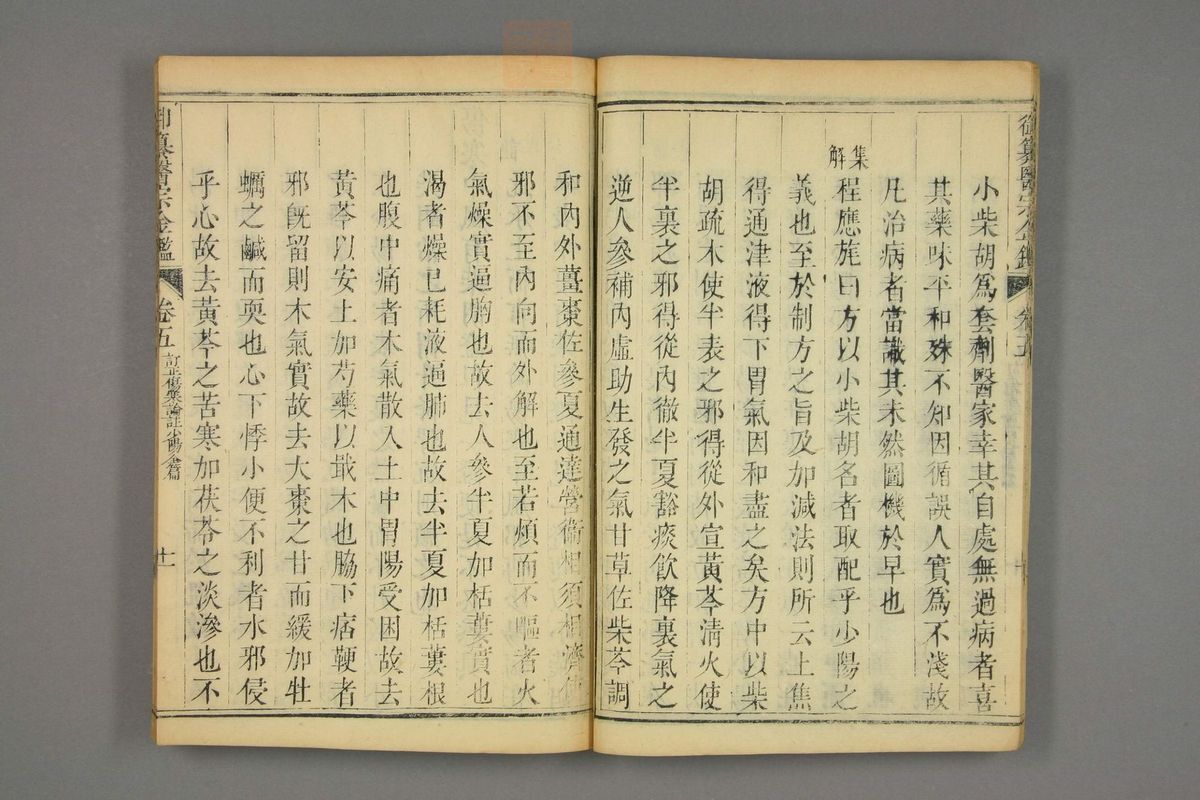 小柴胡爲套劑醫家幸其自處無過病者喜
其藥味平和殊不知因循誤人實爲不淺故
凡治病者當識其未然圖機於早也
集解
程應旄曰方以小柴胡名者取配乎少陽之
義也至於制方之旨及加減法則所云上焦
得通津液得下胃氣因和盡之矣方中以柴
胡疏木使半表之邪得從外宣黃芩淸火使
半裏之邪得從內徹半夏豁痰飮降裏氣之
逆人參補內虛助生發之氣甘草佐柴芩調
和內外薑棗佐參夏通達營衞相須相濟使
邪不至內向而外解也至若煩而不嘔者火
氣燥實逼胸也故去人參半夏加栝蔞實也
渴者燥已耗液逼肺也故去半夏加栝蔞根
也腹中痛者木氣散入土中胃陽受困故去
黃芩以安土加芍藥以戢木也脇下痞鞕者
邪旣留則木氣實故去大棗之甘而緩加牡
蠣之鹹而耎也心下悸小便不利者水邪侵
乎心故去黃芩之苦寒加茯苓之淡滲也不
御纂醫宗金鑑
卷五
訂正傷寒論註少陽全篇
廿一